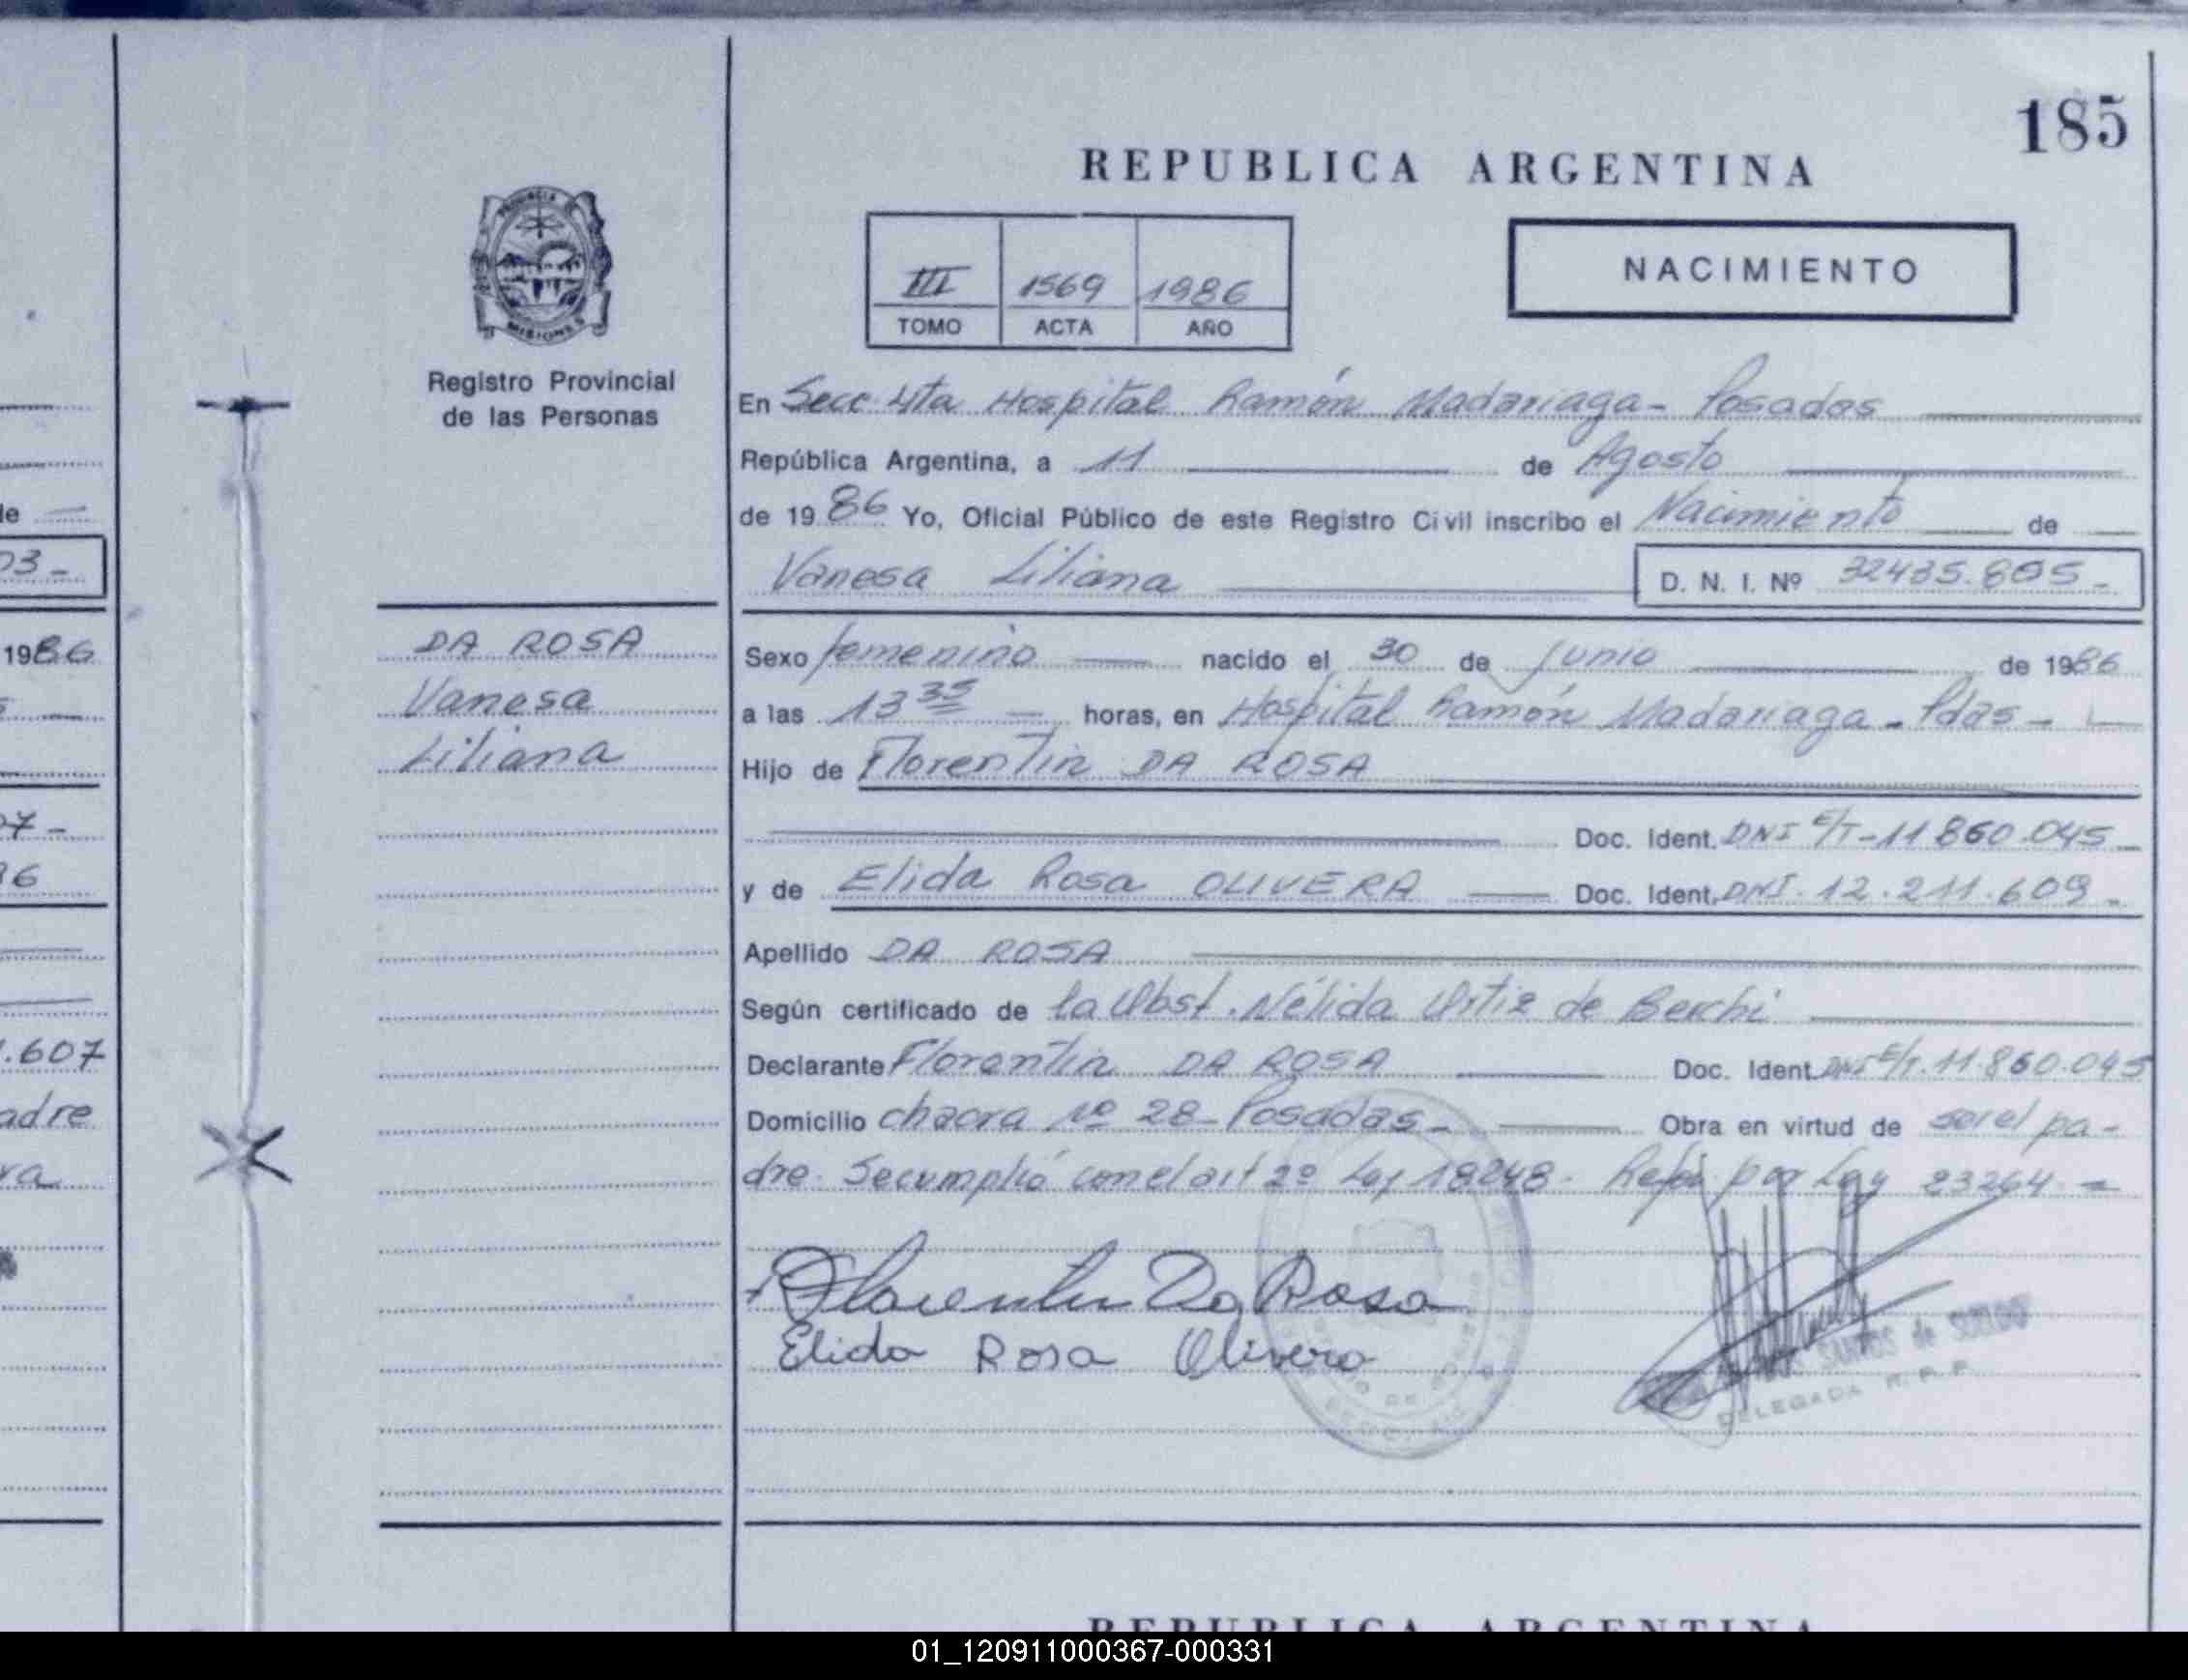 185
REPUBLICA ARGENTINA
PROVINCIA DE
MISIONES
III 1569 1986
TOMO ACTA AÑO
NACIMIENTO
Registro Provincial
de las Personas
En Secc 4ta Hospital Ramón Madariaga - Posadas
República Argentina, a 11 de Agosto
de 1986 Yo, Oficial Público de este Registro Civil inscribo el Nacimiento de
Vanesa Liliana D. N. I. Nº 32435.805-
DA ROSA
Vanesa
Liliana
Sexo femenino nacido el 30 de Junio de 1986
a las 13 35 horas, en Hospital Ramón Madariaga - Pdas -
Hijo de Florentin DA ROSA
Doc. Ident. DNI E/T-11860.045-
y de Elida Rosa OLIVERA Doc. Ident. DNI. 12.211.609-
Apellido DA ROSA
Según certificado de la Obst. Nélida Ortiz de Berchi
Declarante Florentin DA ROSA Doc. Ident. DNI E/T. 11.860.045
Domicilio chacra Nº 28- Posadas- Obra en virtud de ser el pa-
dre. Se cumplió con el art 2º Ley 18248- por Ley 23264-
Florentin Da Rosa
Elida Rosa Olivera
SANTOS de
DELEGADA R. P. P.
le
03-
1986
07-
86
.607
adre
va
REPUBLICA ARGENTINA
01_120911000367-000331